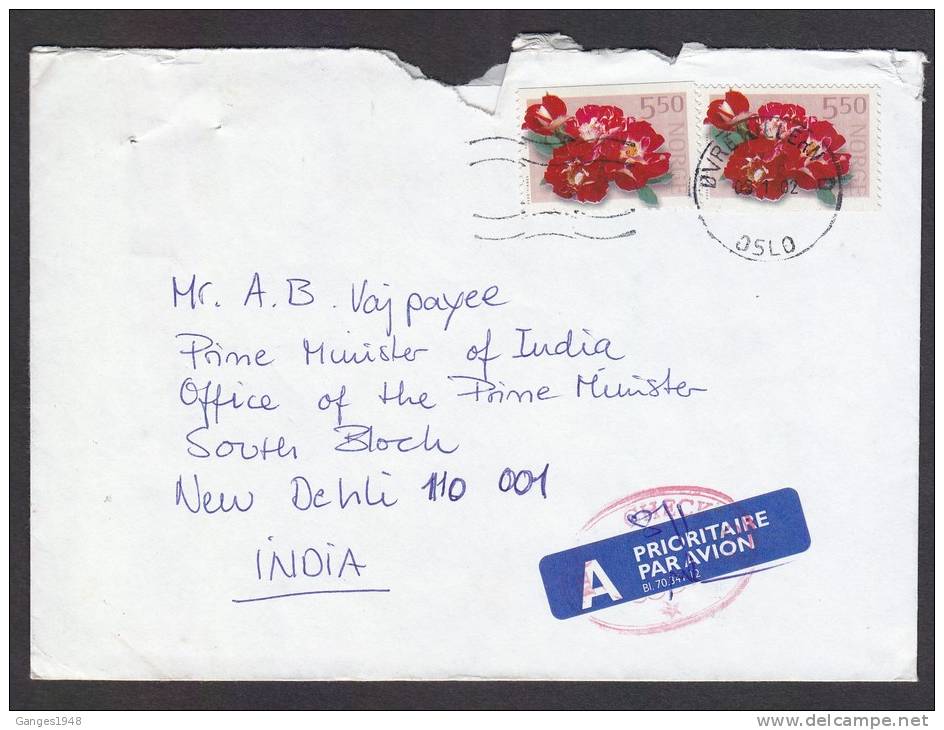 5.50 NORGE
5.50 NORGE
ØVRE ULLERN
1 02
OSLO
Mr. A.B. Vajpayee
Prime Minister of India
Office of the Prime Minister
South Block
New Dehli 110 001
INDIA
CHECK
A PRIORITAIRE
PAR AVION
Ganges1948
www.delcampe.net